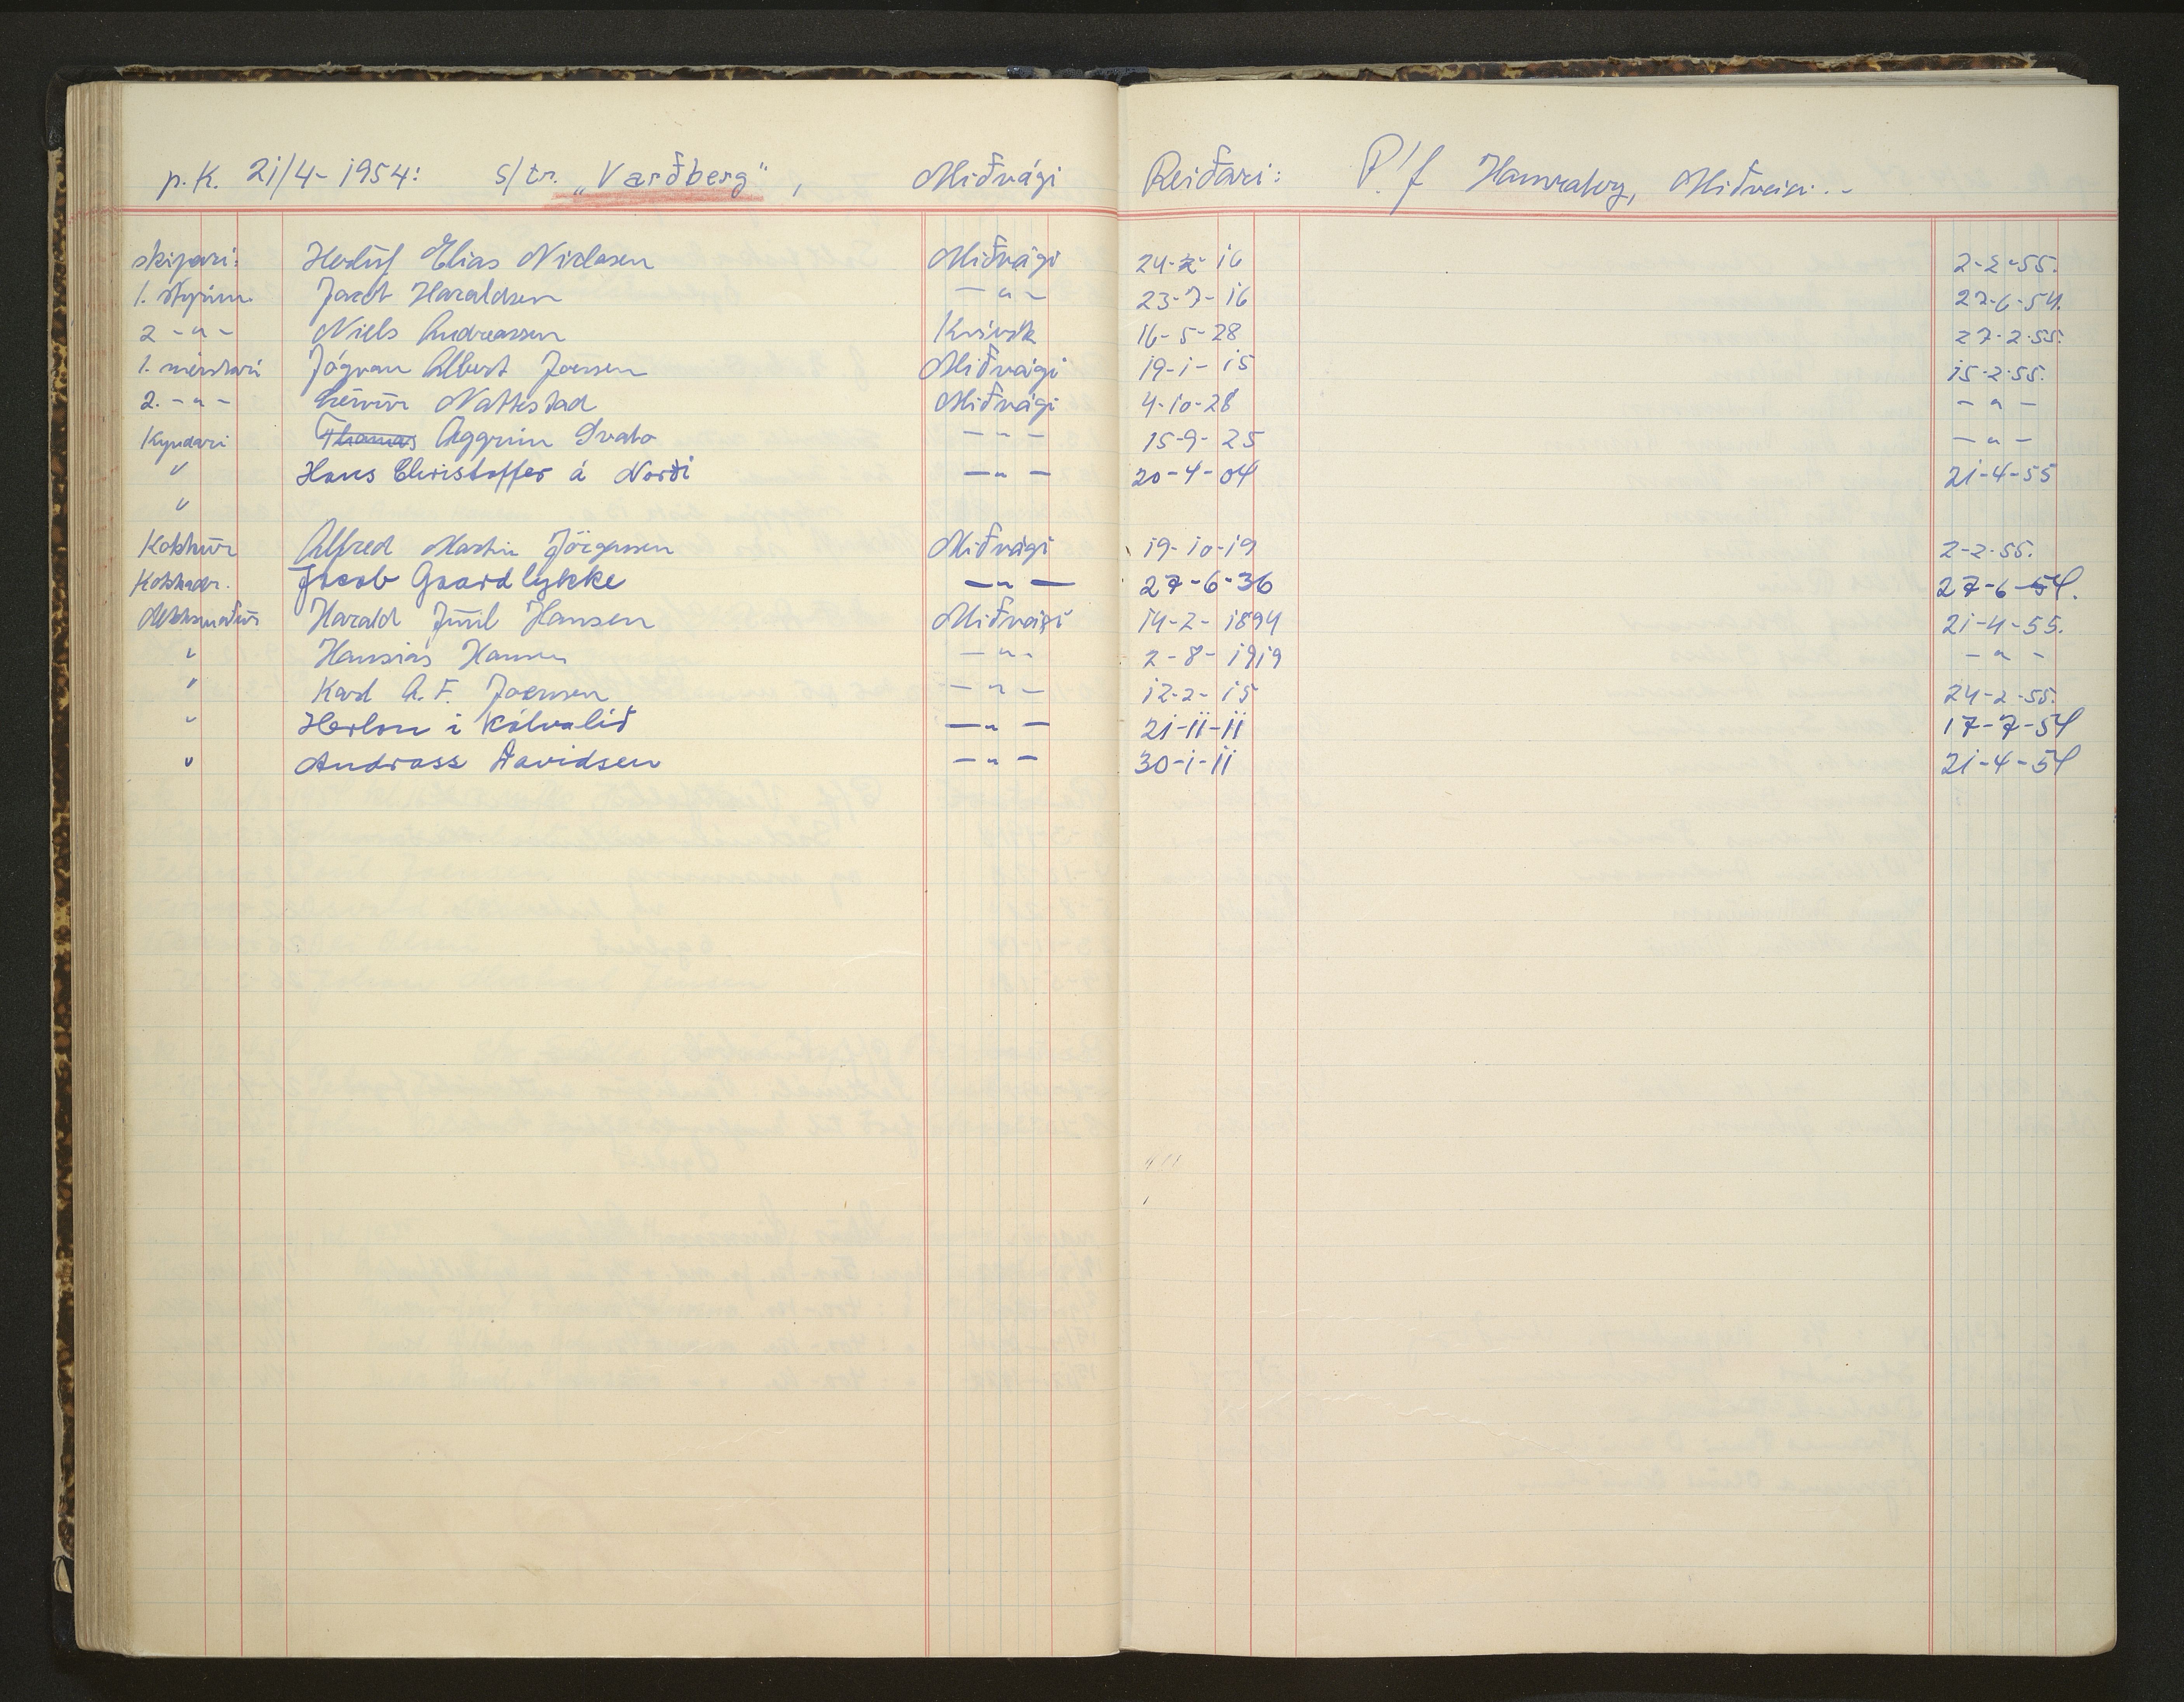 p.k. 21/4-1954: s/tr. „Varðberg", Miðvági Reiðari: P/f Hamraberg, Miðvági..-
skipari: Heðin Elias Niclasen Miðvági 24-2-16 2-2-55.
1. stýrim. Jacob Haraldsen -"- 23-7-16 27-6-54.
2 -"- Niels Andreassen Kvívík 16-5-28 27-2-55.
1. meistari Jógvan Albert Joensen Miðvági 19-1-15 15-2-55.
2. -"- Nattestad Miðvági 4-10-28 -"-
Kyndari Thomas Aggrim Svabo -"- 15-9-25 -"-
" Hans Christoffer á Norði -"- 20-4-04 21-4-55
"
Kokkur Alfred Martin Jörgensen Miðvági 19-10-19 2-2-55.
Kokkadr. Jacob Gaardlykke -"- 27-6-36 27-6-54.
Dekksmaður Harald Juul Hansen Miðvági 14-2-1894 21-4-55.
" Hansias Hansen -"- 2-8-1919 -"-
" Karl A. F. Joensen -"- 12-2-15 24-2-55.
" Herlou i Kálvalið -"- 21-11-11 17-7-54
" Andrass Davidsen -"- 30-1-11 21-4-54